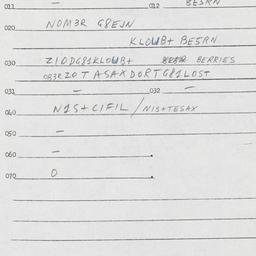 011 — 012 BESRN
020 NOM3R G8EJN
KLOUB+ BESRN
030 ZIODG81KLOUB+ BERRIES
OB3RZO T ASAXDORTG81LOST
031 — 032 —
040 N1S+CIFIL / NIS+TESAX
050 —
060 —
070 O